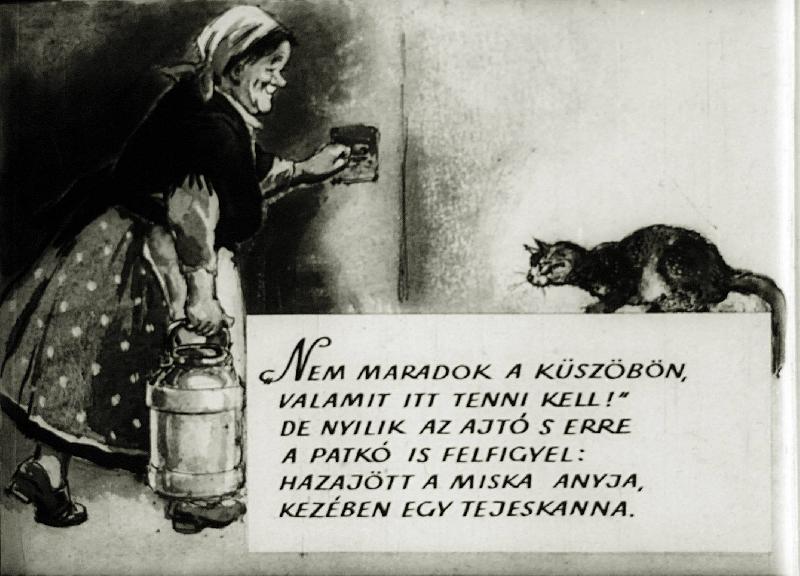 „NEM MARADOK A KÜSZÖBÖN,
VALAMIT ITT TENNI KELL!"
DE NYILIK AZ AJTÓ S ERRE
A PATKÓ IS FELFIGYEL:
HAZAJÖTT A MISKA ANYJA,
KEZÉBEN EGY TEJESKANNA.